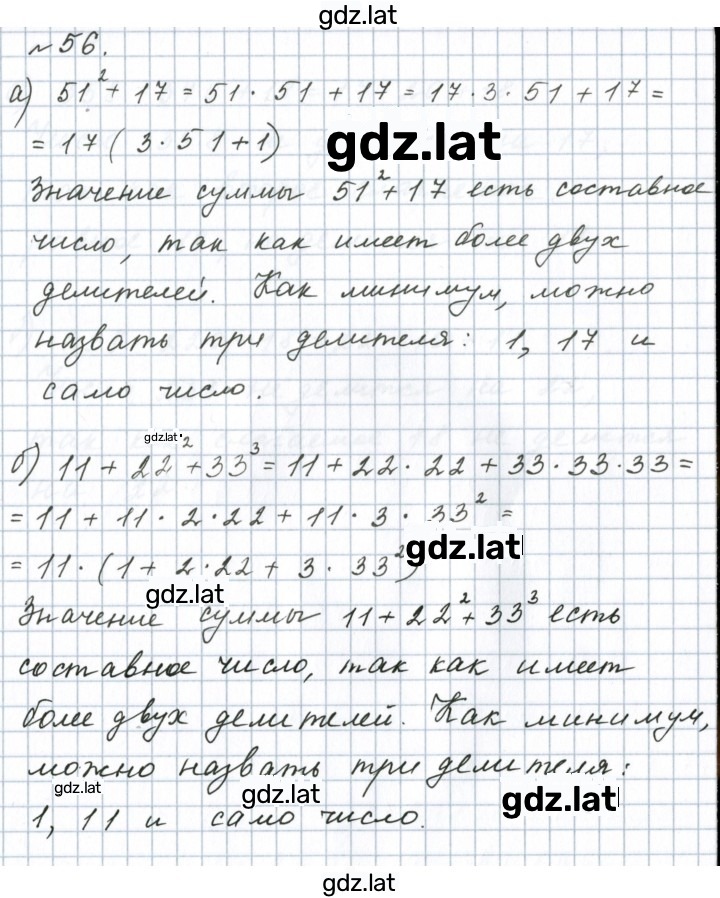 gdz.lat
№56.
а) 51² + 17 = 51 · 51 + 17 = 17 · 3 · 51 + 17 =
= 17 ( 3 · 51 + 1)
gdz.lat
Значение суммы 51² + 17 есть составное
число, так как имеет более двух
делителей. Как минимум, можно
назвать три делителя: 1, 17 и
само число.
gdz.lat
б) 11 + 22² + 33³ = 11 + 22 · 22 + 33 · 33 · 33 =
= 11 + 11 · 2 · 22 + 11 · 3 · 33² =
gdz.lat
= 11 · (1 + 2 · 22 + 3 · 33²)
gdz.lat
Значение суммы 11 + 22² + 33³ есть
составное число, так как имеет
более двух делителей. Как минимум,
можно назвать три делителя:
gdz.lat gdz.lat gdz.lat
1, 11 и само число.
gdz.lat